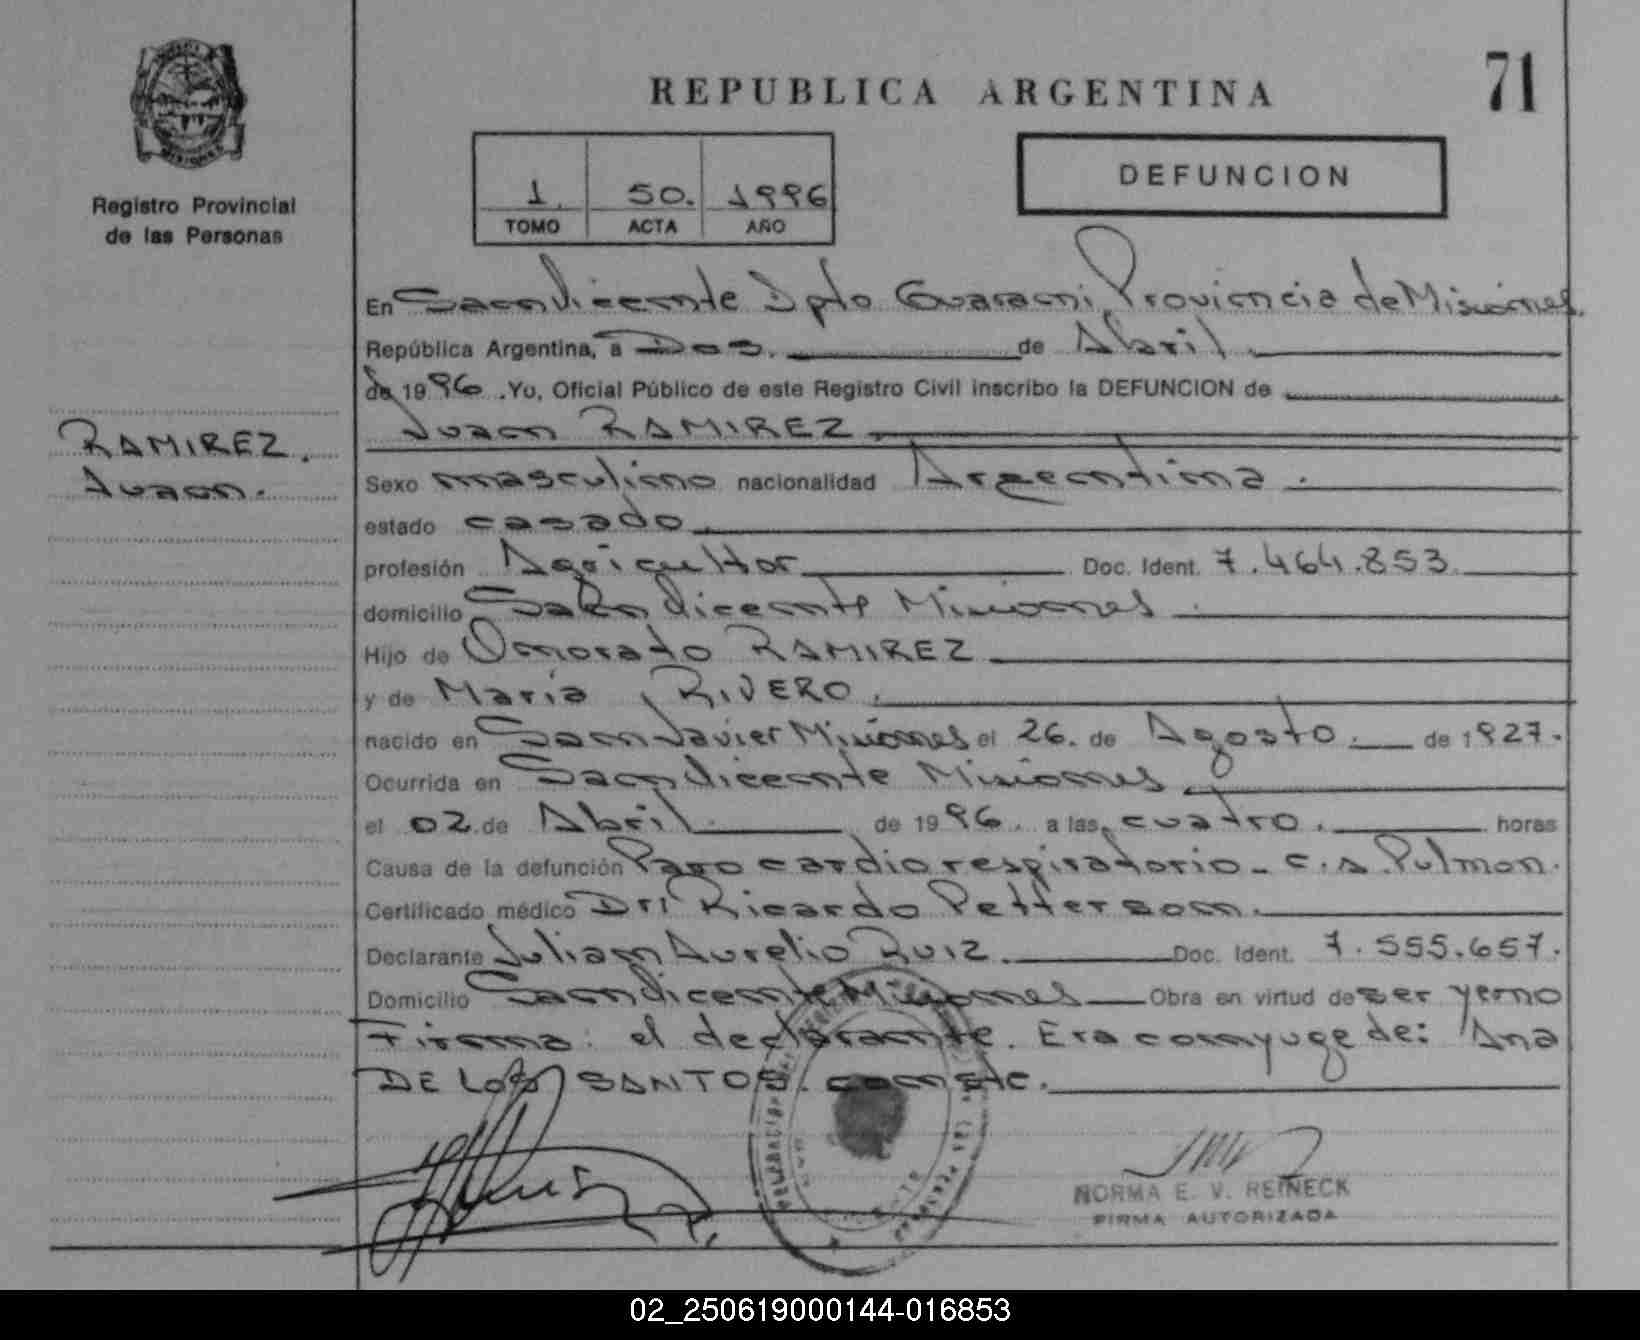 REPUBLICA ARGENTINA
71
MISIONES
Registro Provincial
de las Personas
1. 50. 1996
TOMO ACTA AÑO
DEFUNCION
En San Vicente Dpto Guarani, Provincia de Misiones.
República Argentina, a Dos. de Abril.
de 1996. Yo, Oficial Público de este Registro Civil inscribo la DEFUNCION de
Juan RAMIREZ.
RAMIREZ.
Juan.
Sexo masculino nacionalidad Argentina.
estado casado.
profesión Agricultor Doc. Ident. 7.464.853.
domicilio San Vicente Misiones.
Hijo de Onorato RAMIREZ
y de Maria RIVERO.
nacido en San Javier Misiones el 26. de Agosto. de 1927.
Ocurrida en San Vicente Misiones
el 02 de Abril de 1996. a las cuatro. horas
Causa de la defunción Paro cardio respiratorio - c.a. Pulmon.
Certificado médico Dr: Ricardo Petterson.
Declarante Julian Aurelio RUIZ. Doc. Ident. 7.555.657.
Domicilio San Vicente Misiones Obra en virtud de ser yerno
Firma: el declarante. Era conyuge de: Ana
DE LOS SANTOS. conste.
NORMA E. V. REINECK
FIRMA AUTORIZADA
02_250619000144-016853